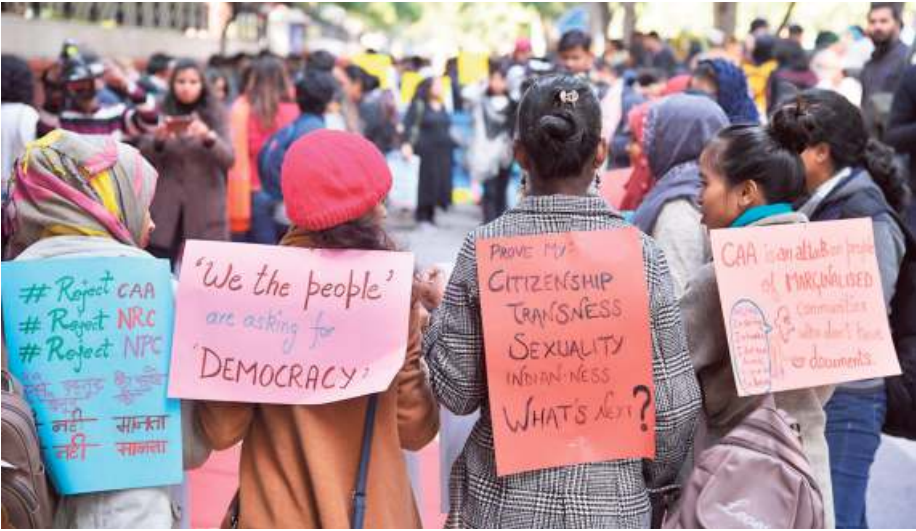 # Reject CAA
# Reject NRC
# Reject NPC
नहीं मानता
नहीं मानता
"We the people"
are asking for
'DEMOCRACY'
PROVE MY:
CITIZENSHIP
TRANSNESS
SEXUALITY
INDIAN-NESS
WHAT'S NEXT?
CAA is an attack on people
of MARGINALISED
communities
who don't have
documents.